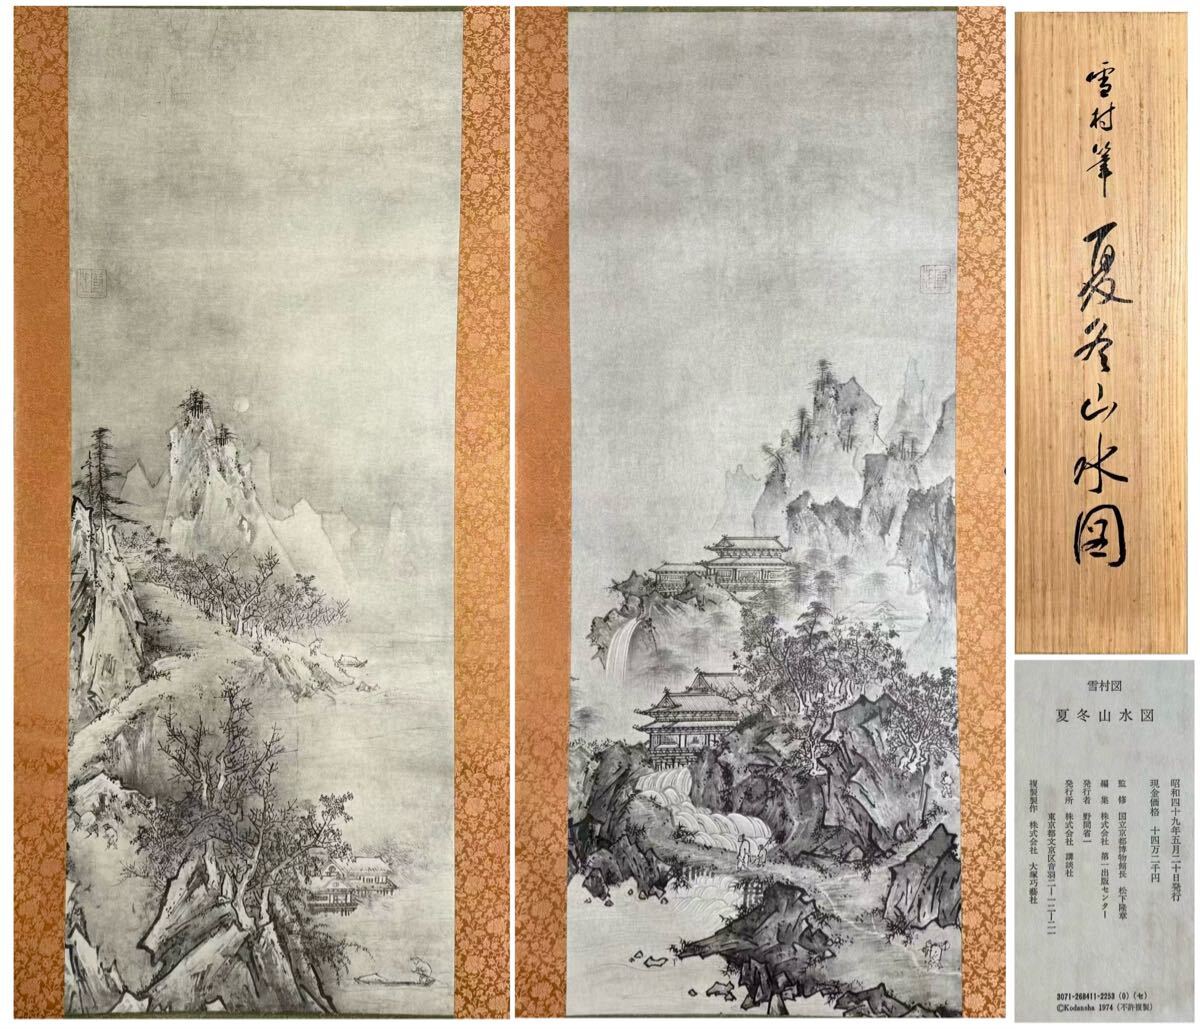 雪村筆 夏冬山水図
雪村図
夏冬山水図
昭和四十九年五月二十日発行
現金価格 十四万二千円
監修 国立京都博物館長 松下隆章
編集 株式会社 第一出版センター
発行者 野間省一
発行所 株式会社 講談社
東京都文京区音羽二ー一二ー二一
複製製作 株式会社 大塚巧藝社
3071-268411-2253 (0) (セ)
©Kodansha 1974 (不許複製)